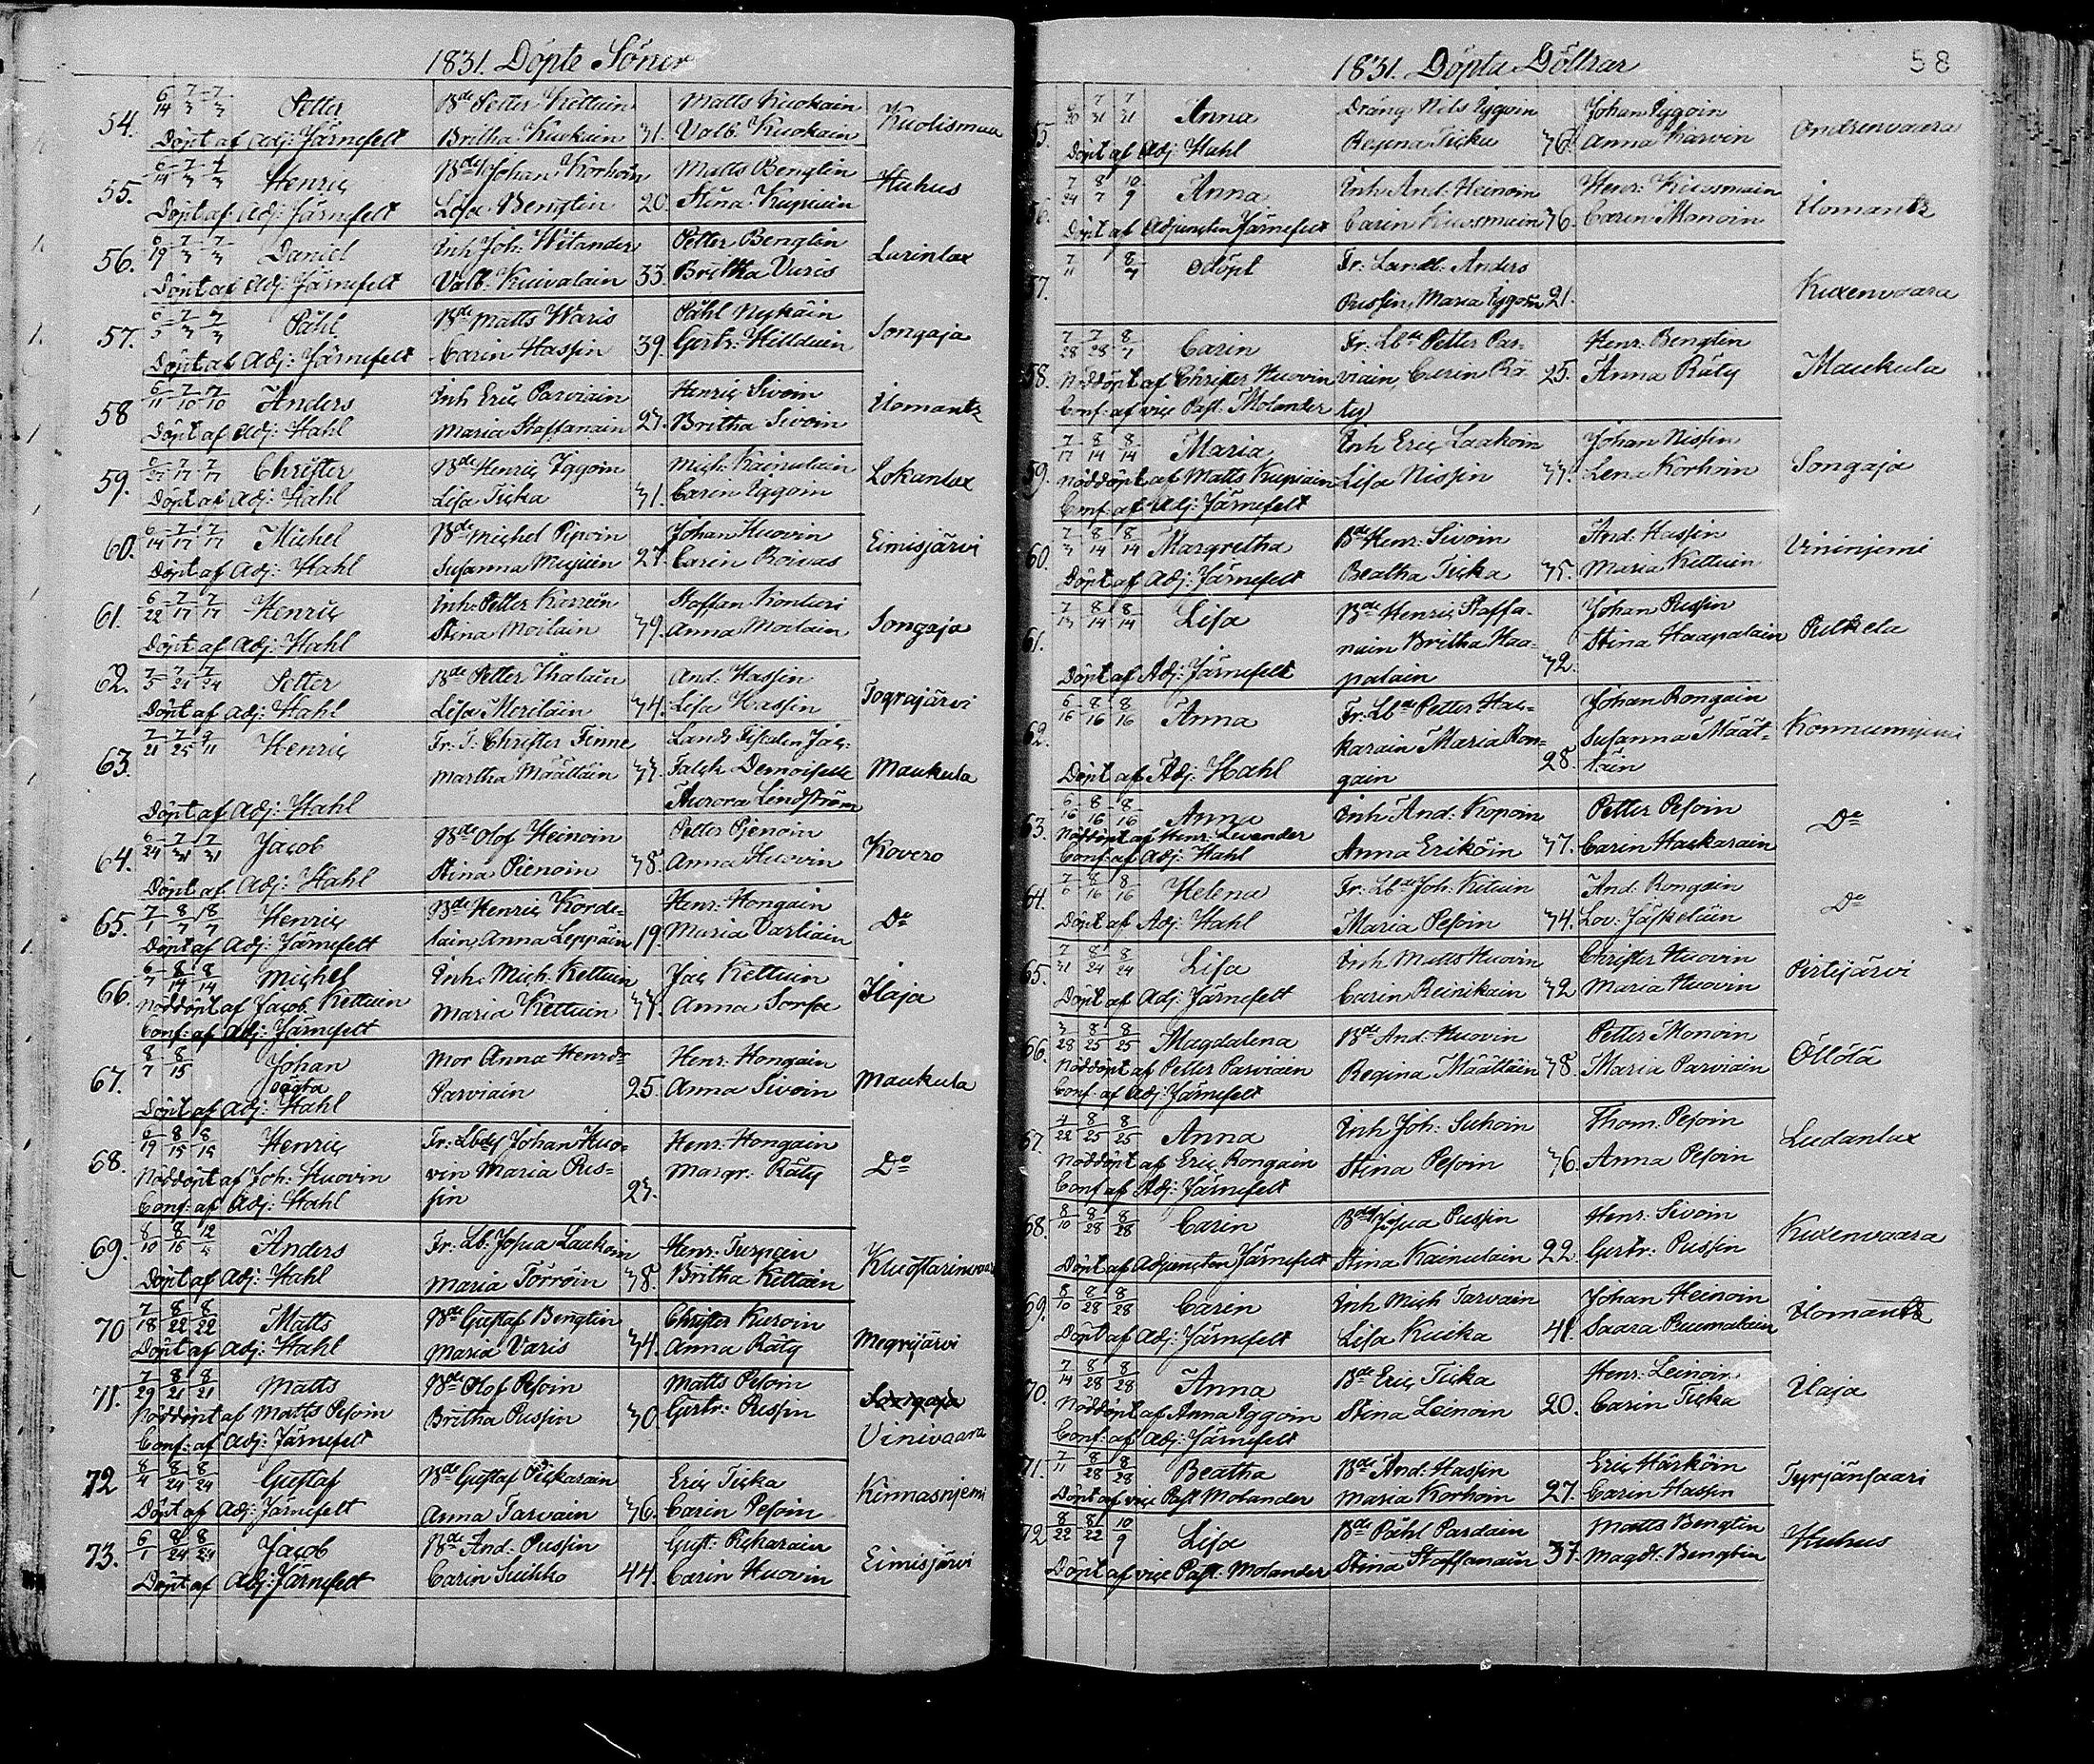 1831. Döpte Söner
54. 6/14 7/3 7/3 Petter Bde Petter Kettuin Matts Kuokain Kuolismaa
Döpt af Adj: Järnefelt Britha Kuokain 31. Valb. Kuokain
55. 6/14 7/3 7/3 Henric Bde Johan Korhoin Matts Bengtin Huhus
Döpt af: Adj: Järnefelt Lisa Bengtin 20. Stina Kupiain
56. 6/19 7/3 7/3 Daniel Inh Joh: Witander Petter Bengtin Lurinlax
Döpt af Adj: Järnefelt Valb: Kuivalain 33. Britha Varis
57. 6/5 7/3 7/3 Påhl Bde Matts Waris Påhl Nykäin Songaja
Döpt af Adj: Järnefelt Carin Hassin 39. Gertr: Hilduin
58 6/11 7/10 7/10 Anders Inh Eric Parviain Henric Sivoin Ilomantz
Döpt af Adj: Hahl Maria Staffanain 27. Britha Sivoin
59. 6/27 7/17 7/17 Christer Bde Henric Iggoin Mich: Kainulain Lokanlax
Döpt af Adj: Hahl Lisa Ticka 31. Carin Iggoin
60. 6/14 7/17 7/17 Michel Bde Michel Piipoin Johan Huovin Eimisjärvi
Döpt af Adj: Hahl Susanna Mujuin 27. Carin Roivas
61. 6/22 7/17 7/17 Henric Inh: Petter Karrein Staffan Konturi Songaja
Döpt af Adj: Hahl Stina Moilain 39. Anna Moilain
62. 7/5 7/24 7/24 Petter Bde Petter Ihalain And: Hassin Tograjärvi
Döpt af Adj: Hahl Lisa Meriläin 34. Lisa Hassin
63. 7/21 7/25 9/11 Henric Fr: T: Christer Finne Lands Fiskalen Jac:
Martha Määttäin 33. Falck Demoiselle Maukula
Döpt af Adj: Hahl Aurora Lindström
64. 6/24 7/31 7/31 Jacob Bde Olof Heinoin Petter Pjenoin Kovero
Döpt af Adj: Hahl Stina Pienoin 38. Anna Huovin
65. 7/1 8/7 8/7 Henric Bde Henric Korde- Henr: Hongain Do
Döpt af Adj: Järnefelt lain, Anna Leppäin 19. Maria Vartiain
66. 6/7 8/14 8/14 Michel Inh: Mich: Kettuin Jac Kettuin Ilaja
Nöddöpt af Jacob Kettuin Maria Kettuin 37. Anna Sorsa
Conf: af Adj: Järnefelt
67. 8/7 8/15 Johan Mor Anna Henrdr Henr: Hongain Maukula
oägta Parviain 25. Anna Sivoin
Döpt af Adj: Hahl
68. 6/19 8/15 8/15 Henric Fr: Lbde Johan Huo- Henr: Hongain Do
Nöddöpt af Joh: Huovin vin Maria Pus- Margr: Räty
Conf: af Adj: Hahl sin 23.
69. 8/10 8/16 12/4 Anders Fr: Lb: Josua Laakoin Henr: Turpein
Döpt af Adj: Hahl Maria Törröin 38. Britha Kettuin
70 7/18 8/22 8/22 Matts Bde Gustaf Bengtin Christer Kuroin Megrijärvi
Döpt af Adj: Hahl Maria Varis 34. Anna Räty
71. 7/29 8/21 8/21 Matts Bde Olof Pesoin Matts Pesoin Songaja
Nöddöpt af Matts Pesoin Britha Pussin 30 Gertr: Pussin Vinivaara
Conf: af Adj: Järnefelt
72 8/4 8/24 8/24 Gustaf Bde Gustaf Pickarain Eric Ticka Kinnasnjemi
Döpt af Adj: Järnefelt Anna Tarvain 36. Carin Pesoin
73. 6/1 8/24 8/24 Jacob Bde And: Pussin Gust: Pickarain Eimisjärvi
Döpt af Adj: Järnefelt Carin Suihko 44. Carin Huovin
1831. Döpta Döttrar 58
55. 6/20 7/31 7/31 Anna Dräng Nils Iggoin Johan Iggoin Ondrenvaara
Döpt af Adj Hahl Regina Ticka 36. Anna Karvin
56. 7/24 8/7 10/9 Anna Inh And: Heinoin Henr: Kuosmain Ilomantz
Döpt af Adjuncten Järnefelt Carin Kuosmain 36. Carin Manoin
57. 7/11 8/7 odöpt Fr: Landb: Anders Kuxenvaara
Pussin, Maria Iggoin 21.
58. 7/28 7/28 8/7 Carin Fr: Lbde Petter Par- Henr: Bengtin Maukula
Nöddöpt af Christer Huovin viain, Carin Rä- 25. Anna Räty
Conf: af vice Past: Molander ty)
59. 7/17 8/14 8/14 Maria Inh Eric Laakoin Johan Nissin Songaja
Nöddöpt af Matts Kupiain Lisa Nissin 37. Lena Korhoin
Conf: af Adj: Järnefelt
60. 7/3 8/14 8/14 Margretha Bde Henr: Sivoin And: Hassin Vininjemi
Döpt af Adj: Järnefelt Beatha Ticka 35. Maria Kettuin
61. 7/13 8/14 8/14 Lisa Bde Henric Staffa- Johan Pussin Putkela
nain Britha Haa- Stina Haapalain
Döpt af Adj: Järnefelt palain 32.
62. 6/16 8/16 8/16 Anna Fr: Lbde Petter Has- Johan Rongain Konnunnjemi
karain Maria Ron- Susanna Määt-
Döpt af Adj: Hahl gain 28. täin
63. 6/16 8/16 8/16 Anna Inh And: Kopoin Petter Pesoin Do
Nöddöpt af Henr: Levander
Conf: af Adj: Hahl Anna Eriköin 37. Carin Haskarain
64. 7/6 8/16 8/16 Helena Fr: Lbde Joh: Kituin And: Rongain Do
Döpt af Adj: Hahl Maria Pesoin 34. Lov: Jäskeläin
65. 7/31 8/24 8/24 Lisa Inh Matts Huovin Christer Huovin Pirtijärvi
Döpt af Adj: Järnefelt Carin Reinikain 32 Maria Huovin
66. 3/28 8/25 8/25 Magdalena Bde And: Huovin Petter Monoin Öllölä
Nöddöpt af Petter Parviain Regina Määttäin 38. Maria Parviain
Conf: af Adj: Järnefelt
67. 4/22 8/25 8/25 Anna Inh Joh: Suhoin Thom: Pesoin Ludanlax
Nöddöpt af Eric Rongain Stina Pesoin 36. Anna Pesoin
Conf af Adj: Järnefelt
68. 8/10 8/28 8/28 Carin Bde Josua Pussin Henr: Sivoin Kuxenvaara
Döpt af Adjuncten Järnefelt Stina Kainulain 22. Gertr: Pussin
69. 8/10 8/28 8/28 Carin Inh Mich Tarvain Johan Heinoin Ilomantz
Döpt af Adj: Järnefelt Lisa Kuika 41. Saara Puumalain
70. 7/14 8/28 8/28 Anna Bde Eric Ticka Henr: Leinoin Ilaja
Nöddöpt af Anna Iggoin Stina Leinoin 20. Carin Ticka
Conf: af Adj: Järnefelt
71. 7/11 8/28 8/28 Beatha Bde And: Hassin Eric Härköin Tyrjänsaari
Döpt af vice Past Molander Maria Korhoin 27. Carin Hassin
72 8/22 8/22 10/9 Lisa Bde Påhl Pardain Matts Bengtin Huhus
Döpt af vice Past: Molander Stina Staffanain 37. Magdl: Bengtin